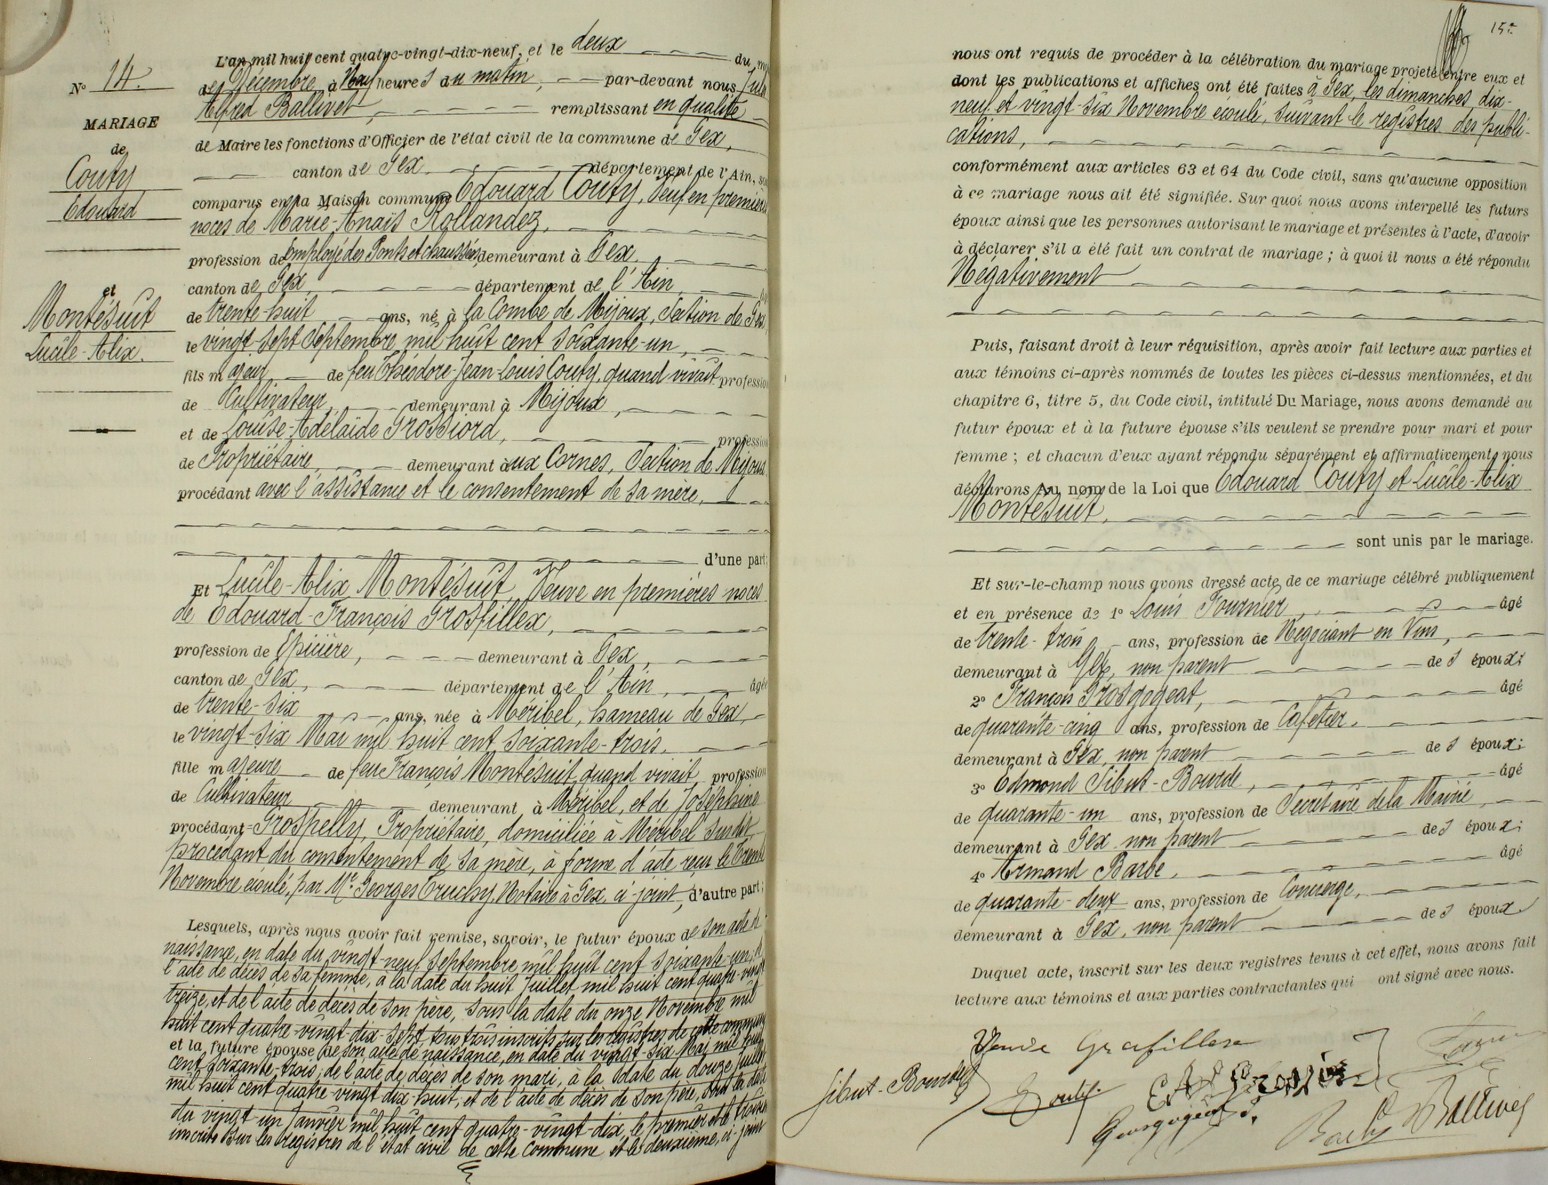 N° 14.
MARIAGE
de
Couty
Edouard
et
Montésuit
Lucile-Alix.
L'an mil huit cent quatre-vingt-dix-neuf, et le deux du
de Décembre, à Neuf heures du matin, par-devant nous Jules
Alfred Ballivet, remplissant en qualité
de Maire les fonctions d'Officier de l'état civil de la commune de Gex,
canton de Gex département de l'Ain,
comparus en la Maison commune Edouard Couty, Veuf en premières
noces de Marie-Anaïs Rollandez,
profession de Employé des Ponts et chaussées, demeurant à Gex,
canton de Gex, département de l'Ain,
de trente-huit ans, né à la Combe de Mijoux, Section de Gex,
le vingt-sept Septembre mil huit cent soixante-un,
fils majeur de feu Théodore-Jean-Louis Couty, quand vivait profession
de Cultivateur, demeurant à Mijoux,
et de Louise-Adélaïde Grossiord, profession
de Propriétaire, demeurant aux Cornes, Section de Mijoux
procédant avec l'assistance et le consentement de sa mère,
d'une part;
Et Lucile-Alix Montésuit, Veuve en premières noces
de Edouard-François Grosfillex,
profession de Epicière, demeurant à Gex,
canton de Gex, département de l'Ain, âgée
de trente-six ans, née à Méribel, hameau de Gex,
le vingt-six Mai mil huit cent soixante-trois,
fille majeure de feu François Montésuit, quand vivait profession
de Cultivateur demeurant à Méribel, et de Joséphine
procédant Grospelly, Propriétaire, domiciliée à Méribel susdit
procédant du consentement de sa mère, à forme d'acte reçu le trente
Novembre écoulé, par Me Georges Truchy, Notaire à Gex, ci-joint, d'autre part;
Lesquels, après nous avoir fait remise, savoir, le futur époux de son acte de
naissance, en date du vingt-neuf Septembre mil huit cent soixante-un, de
l'acte de décès de sa femme, à la date du huit Juillet mil huit cent quatre-vingt
treize, et de l'acte de décès de son père, sous la date du onze Novembre mil
huit cent quatre-vingt-dix-sept, tous trois inscrits sur les registres de cette commune
et la future épouse de son acte de naissance, en date du vingt-six Mai mil huit
cent soixante-trois, de l'acte de décès de son mari, à la date du douze Juillet
mil huit cent quatre-vingt-dix-huit, et de l'acte de décès de son père, sous la date
du vingt-un Janvier mil huit cent quatre-vingt-dix, le premier et le troisième
inscrits sur les registres de l'état civil de cette commune et le deuxième, ci-joint
nous ont requis de procéder à la célébration du mariage projeté entre eux et
dont les publications et affiches ont été faites à Gex, les dimanches, dix-
neuf et vingt-six Novembre écoulé, suivant le registres des publi-
cations,
conformément aux articles 63 et 64 du Code civil, sans qu'aucune opposition
à ce mariage nous ait été signifiée. Sur quoi nous avons interpellé les futurs
époux ainsi que les personnes autorisant le mariage et présentes à l'acte, d'avoir
à déclarer s'il a été fait un contrat de mariage ; à quoi il nous a été répondu
Négativement
Puis, faisant droit à leur réquisition, après avoir fait lecture aux parties et
aux témoins ci-après nommés de toutes les pièces ci-dessus mentionnées, et du
chapitre 6, titre 5, du Code civil, intitulé Du Mariage, nous avons demandé au
futur époux et à la future épouse s'ils veulent se prendre pour mari et pour
femme ; et chacun d'eux ayant répondu séparément et affirmativement, nous
déclarons au nom de la Loi que Edouard Couty et Lucile-Alix
Montésuit,
sont unis par le mariage.
Et sur-le-champ nous avons dressé acte de ce mariage célébré publiquement
et en présence de 1° Louis Fournier, âgé
de trente-trois ans, profession de Négociant en Vins,
demeurant à Gex, non parent des époux;
2° François Grosgogeat, âgé
de quarante-cinq ans, profession de Cafetier,
demeurant à Gex, non parent des époux;
3° Edmond Sibut-Bourde, âgé
de quarante-un ans, profession de Secrétaire de la Mairie,
demeurant à Gex non parent des époux;
4° Armand Barbe, âgé
de quarante-deux ans, profession de Concierge,
demeurant à Gex, non parent des époux
Duquel acte, inscrit sur les deux registres tenus à cet effet, nous avons fait
lecture aux témoins et aux parties contractantes qui ont signé avec nous.
Sibut-Bourde
Grosgogeat
Ballivet